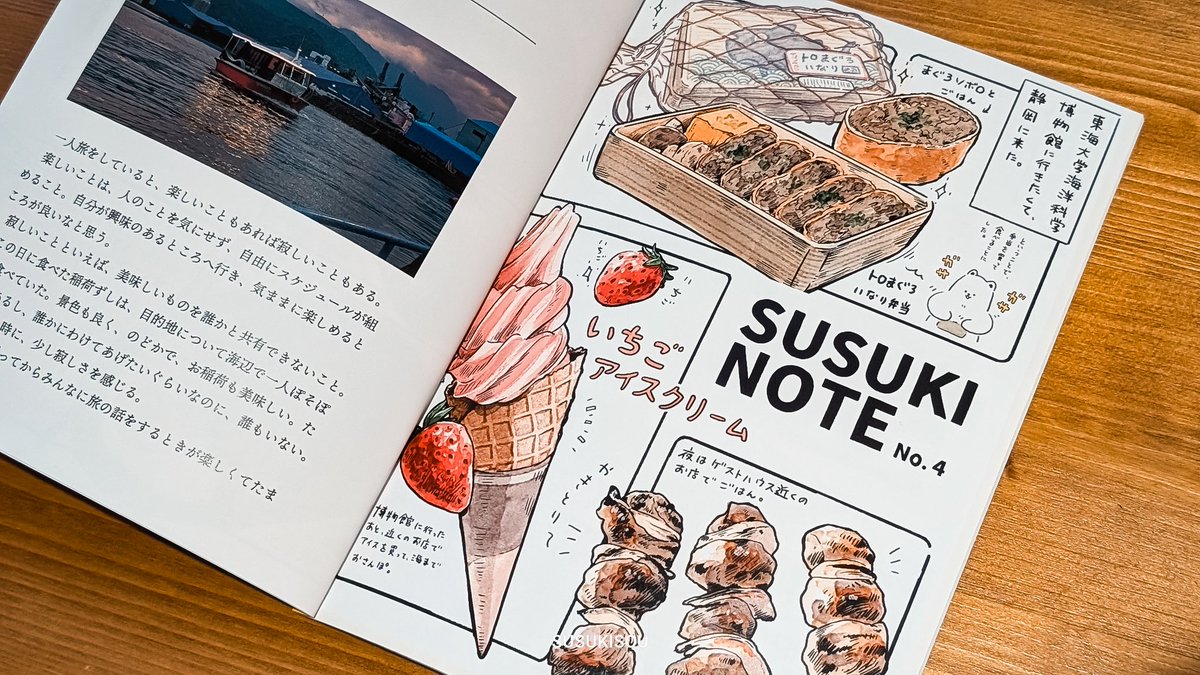 一人旅をしていると、楽しいこともあれば寂しいこともある。
楽しいことは、人のことを気にせず、自由にスケジュールが組
めること。自分が興味のあるところへ行き、気ままに楽しめると
ころが良いなと思う。
寂しいことといえば、美味しいものを誰かと共有できないこと。
この日に食べた稲荷ずしは、目的地について海辺で一人ぼそぼ
食べていた。景色も良く、のどかで、お稲荷も美味しい。た
るし、誰かにわけてあげたいぐらいなのに、誰もいない。
時に、少し寂しさを感じる。
ってからみんなに旅の話をするときが楽しくてたま
東海大学海洋科学
博物館に行きたくて、
静岡に来た。
まぐろソボロと
ごはん♩
トロまぐろ
いなり
トロまぐろ
いなり弁当
ガサ
ガサ
いちご
いちご
アイスクリーム
SUSUKI
NOTE No.4
博物館に行った
あと、近くのお店で
アイスを買って、海まで
おさんぽ。
夜はゲストハウス近くの
お店でごはん。
SUSUKISOU